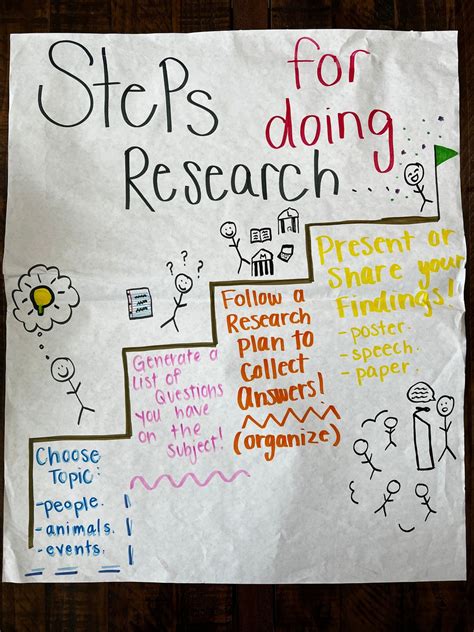 Steps for doing
Research
Choose
Topic:
-people.
-animals.
-events.
Generate a
List of
Questions
you have
on the
subject!
Follow a
Research
Plan to
Collect
Answers!
(organize)
Present or
Share your
Findings!
-poster.
-speech.
-paper.
? ? ?